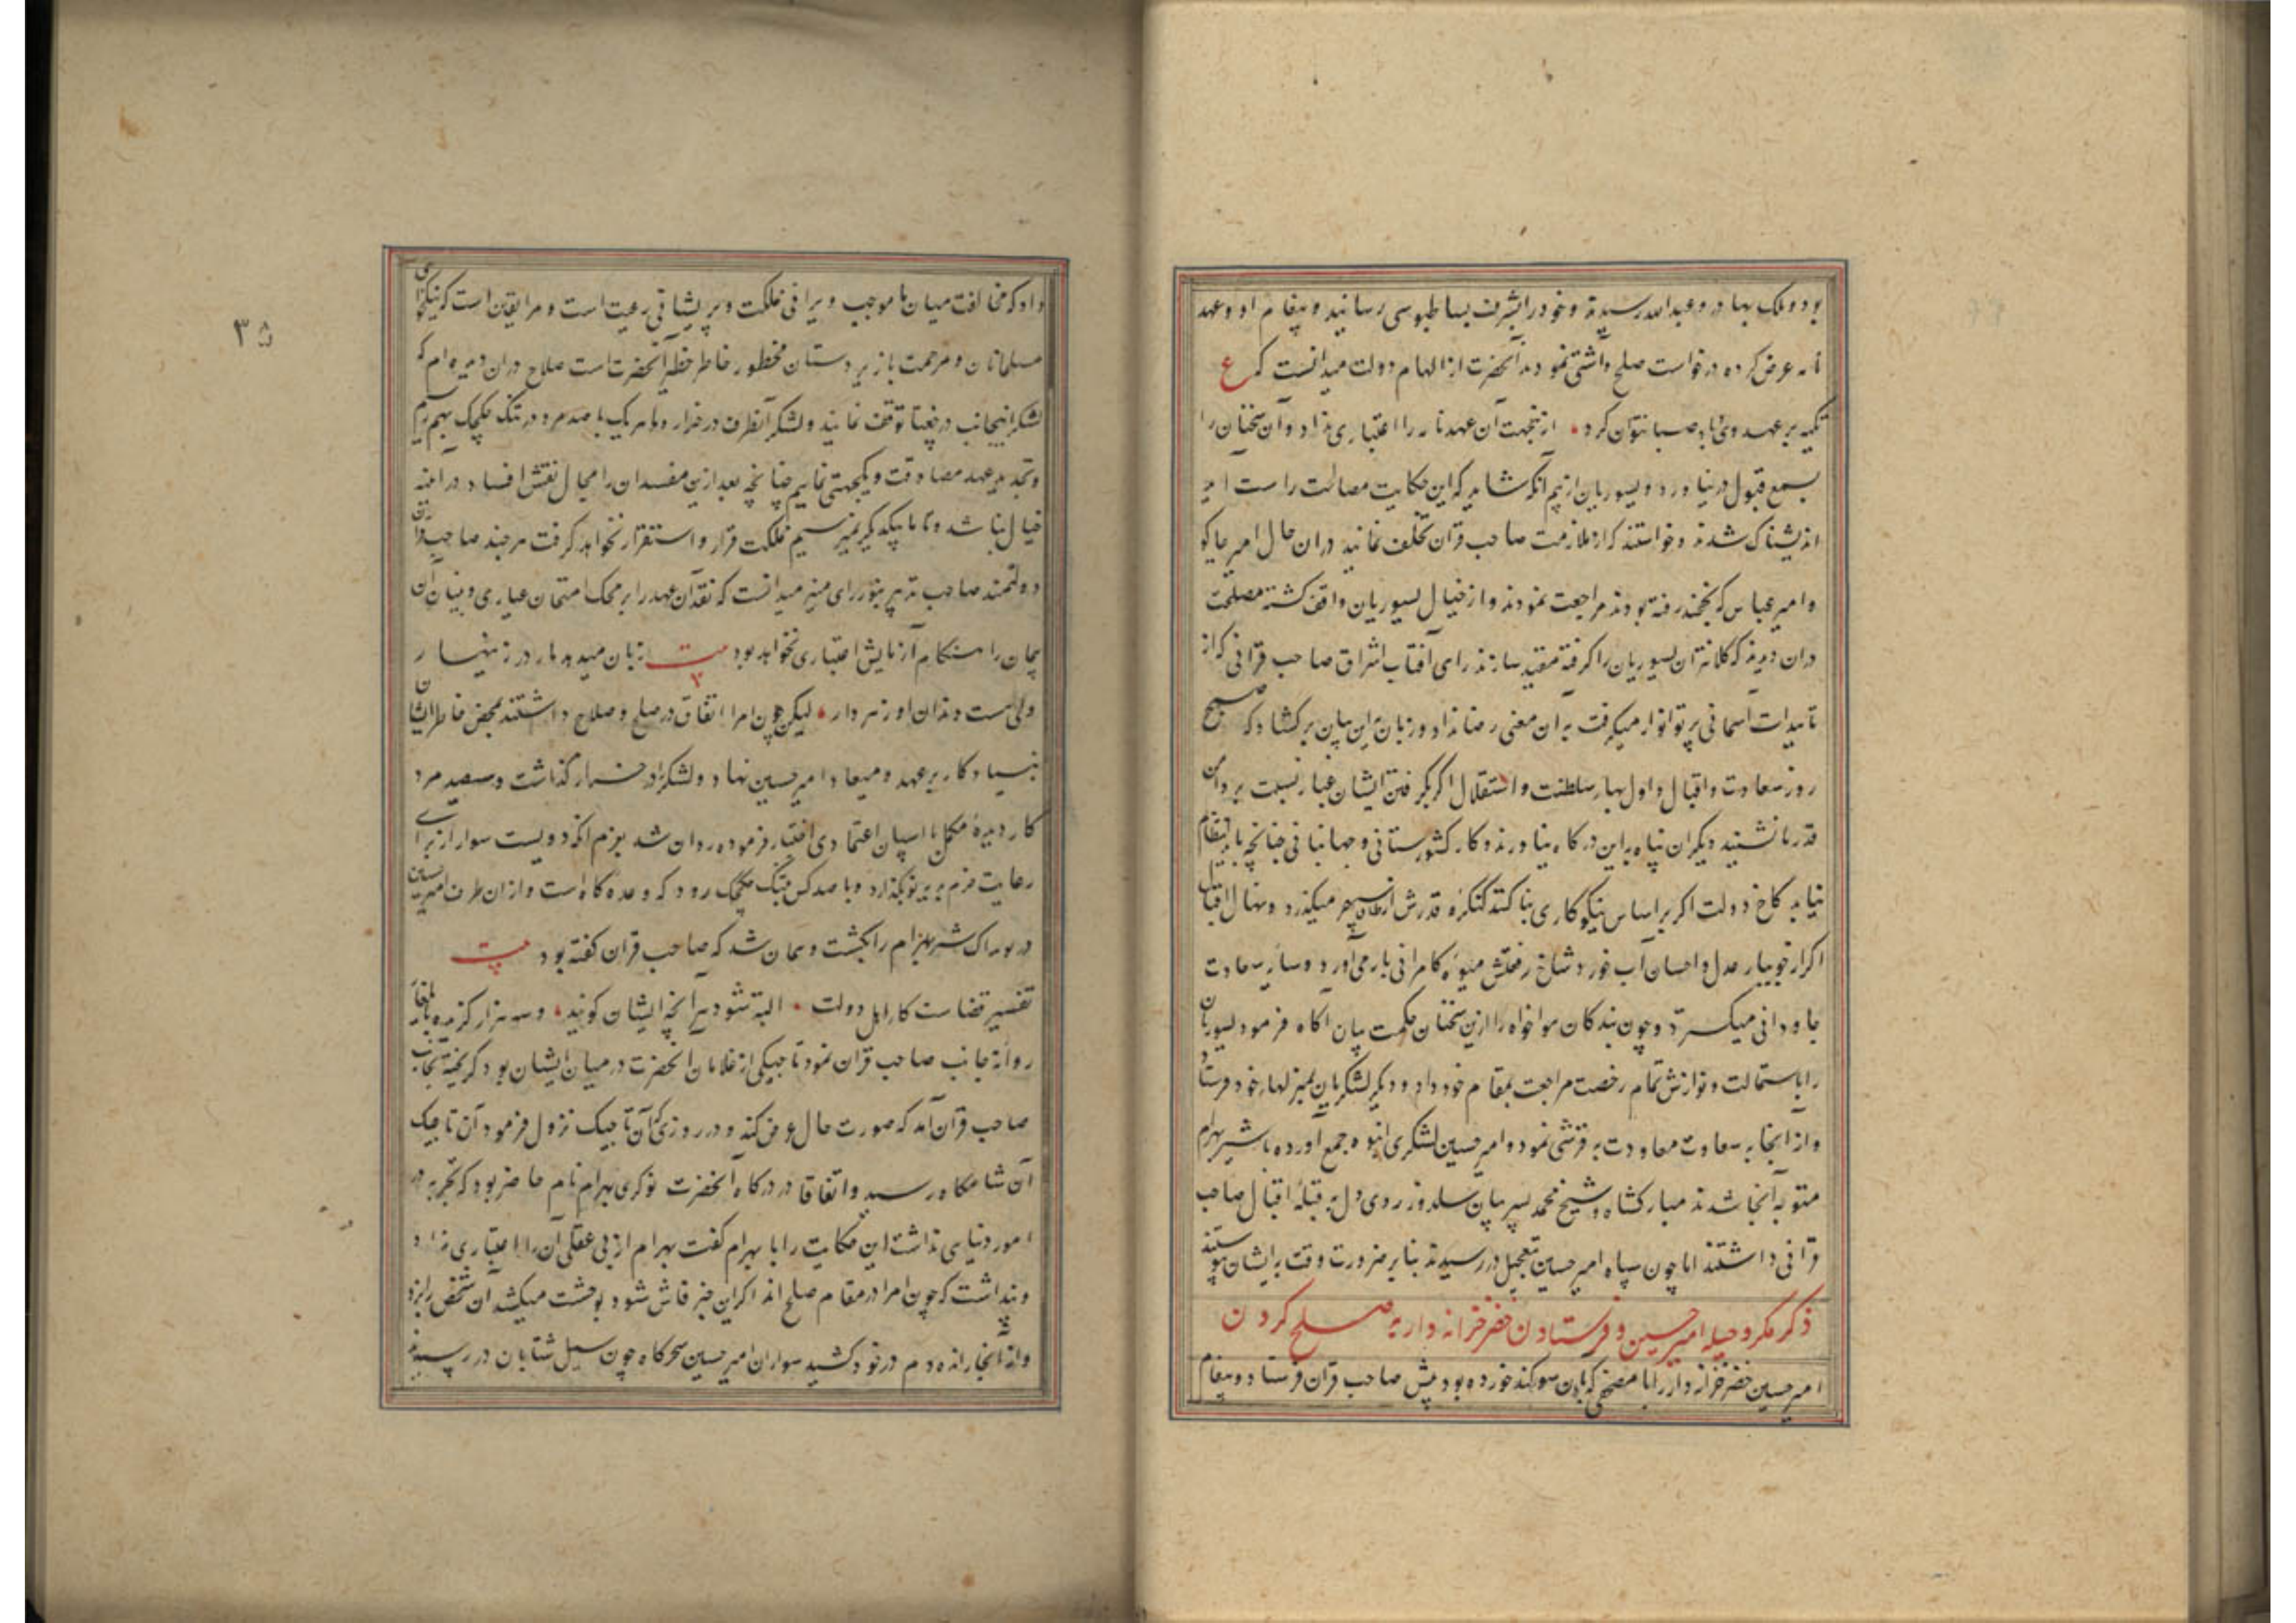 بود و ملک بهادر و عبدالله رسیدند و خود را بشرف بساط بوسی رسانید و پیغام او و عهد
نامه عرض کرده درخواست صلح و آشتی نمودند آنحضرت از الهام دولت میدانست که ع
تکیه بر عهد وی و باد صبا نتوان کرد ازینجهت آن عهدنامه را اعتباری نداد و آن سخنان را
بسمع قبول در نیاورد و یسوریان از بیم آنکه شاید که این حکایت مصالحت راست آید
اندیشناک شدند و خواستند که از ملازمت صاحب قران تخلف نمایند در آن حال امیر جاکو
و امیر عباس که بخجند رفته بودند مراجعت نمودند و از خیال یسوریان واقف گشته مصلحت
دران دیدند که کلانتران یسوریان را گرفته مقید سازند رای آفتاب اشراق صاحب قرانی که از
تاییدات آسمانی پرتو انوار میگرفت به آن معنی رضا نداد و زبان به این بیان برگشاد که صبح
روز سعادت و اقبال و اول بهار سلطنت و استقلال اگر بگرفتن ایشان غبار نسبت بر دامن
قدر ما نشیند دیگران پناه به این درگاه نیاورند و کار کشورستانی و جهانبانی چنانچه باید انتظام
نیابد کاخ دولت اگر بر اساس نیکوکاری بنا کنند کنگره قدرش از طاق سپهر میگذرد و نهال اقبال
اگر از جویبار عدل و احسان آب خورد شاخ رفعتش میوه کامرانی بار می آورد و سایه سعادت
جاودانی میگسترد و چون بندگان هواخواه را ازین سخنان حکمت بیان آگاه فرمود یسوریان
را باستمالت و نوازش تمام رخصت مراجعت بمقام خود داد و دیگر لشکریان بمنزلهاء خود فرستاد
و از آنجا به سعادت معاودت به قرشی نمود و امیر حسین لشکری انبوه جمع آورده با شیر بهرام
متوجه آنجا شدند مبارکشاه و شیخ محمد پسر بیان سلدوز روی دل به قبله اقبال صاحب
قرانی داشتند اما چون سپاه امیر حسین بتعجیل در رسیدند بنابر ضرورت وقت به ایشان پیوستند
ذکر مکر و حیله امیر حسین و فرستادن خضر خزانه دار به صلح کردن
امیر حسین خضر خزانه دار را با مصحفی که بدان سوگند خورده بود پیش صاحب قران فرستاد و پیغام
۳۵
داد که مخالفت میان ما موجب ویرانی مملکت و پریشانی رعیت است و مرا یقین است که نیکخواهی
مسلمانان و مرحمت با زیردستان محظور خاطر خطیر آنحضرت است صلاح دران دیده ام که
لشکر اینجانب در چغنا توقف نمایند و لشکر آنطرف در خزار و ما هر یک با صد مرد در تنک چکچک بهم رسیم
و تجدید عهد مصادقت و یکجهتی نماییم چنانچه بعد ازین مفسدان را مجال نقش افساد در آینه
خیال نباشد و تا ما بیکدیگر نمیرسیم مملکت قرار و استقرار نخواهد گرفت هر چند صاحب قران
دولتمند صاحب تدبیر بنور رای منیر میدانست که نقد آن عهد را بر محک امتحان عیاری و بنیان آن
پیمان را هنگام آزمایش اعتباری نخواهد بود بیت زبان میدهد مار در زینهار
ولی هست دندان او زهردار لیکن چون امرا اتفاق در صلح و صلاح داشتند بمحض خاطر ایشان
بنیاد کار بر عهد و میعاد امیر حسین نهاد و لشکر را در خزار گذاشت و سیصد مرد
کار دیده مکمل با اسپان اعتمادی اختیار فرموده روان شد بعزم آنکه دویست سوار از برای
رعایت حزم به یرنو بگذارد و با صد کس بتنک چکچک رود که وعده گاه است و از ان طرف امیر حسین
در شیر بهرام را بکشت و همان شد که صاحب قران گفته بود بیت
تفسیر قضاست کار اهل دولت البته شود هر آنچه ایشان گویند و سه هزار گزیده بایلغار
روانه جانب صاحب قران نمود تاجیکی از غلامان آنحضرت در میان ایشان بود گریخته بجانب
صاحب قران آمد که صورت حال عرض کند و در روزی که آن تاجیک نزول فرمود آن تاجیک
آن شامگاه در رسید و اتفاقا در درگاه آنحضرت نوکری بهرام نام حاضر بود که تجربه در
امور دنیایی نداشت این حکایت را با بهرام گفت بهرام از بی عقلی آن را اعتباری نداد
و پنداشت که چون امرا در مقام صلح اند اگر این خبر فاش شود بوحشت میکشد آن شخص را بزد
و از آنجا رانده دم در خود کشید سواران امیر حسین سحرگاه چون سیل شتابان در رسیدند